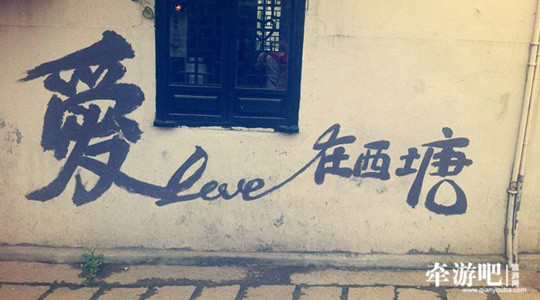 爱Love在西塘
牵游吧
旅游网
www.qianyouba.com